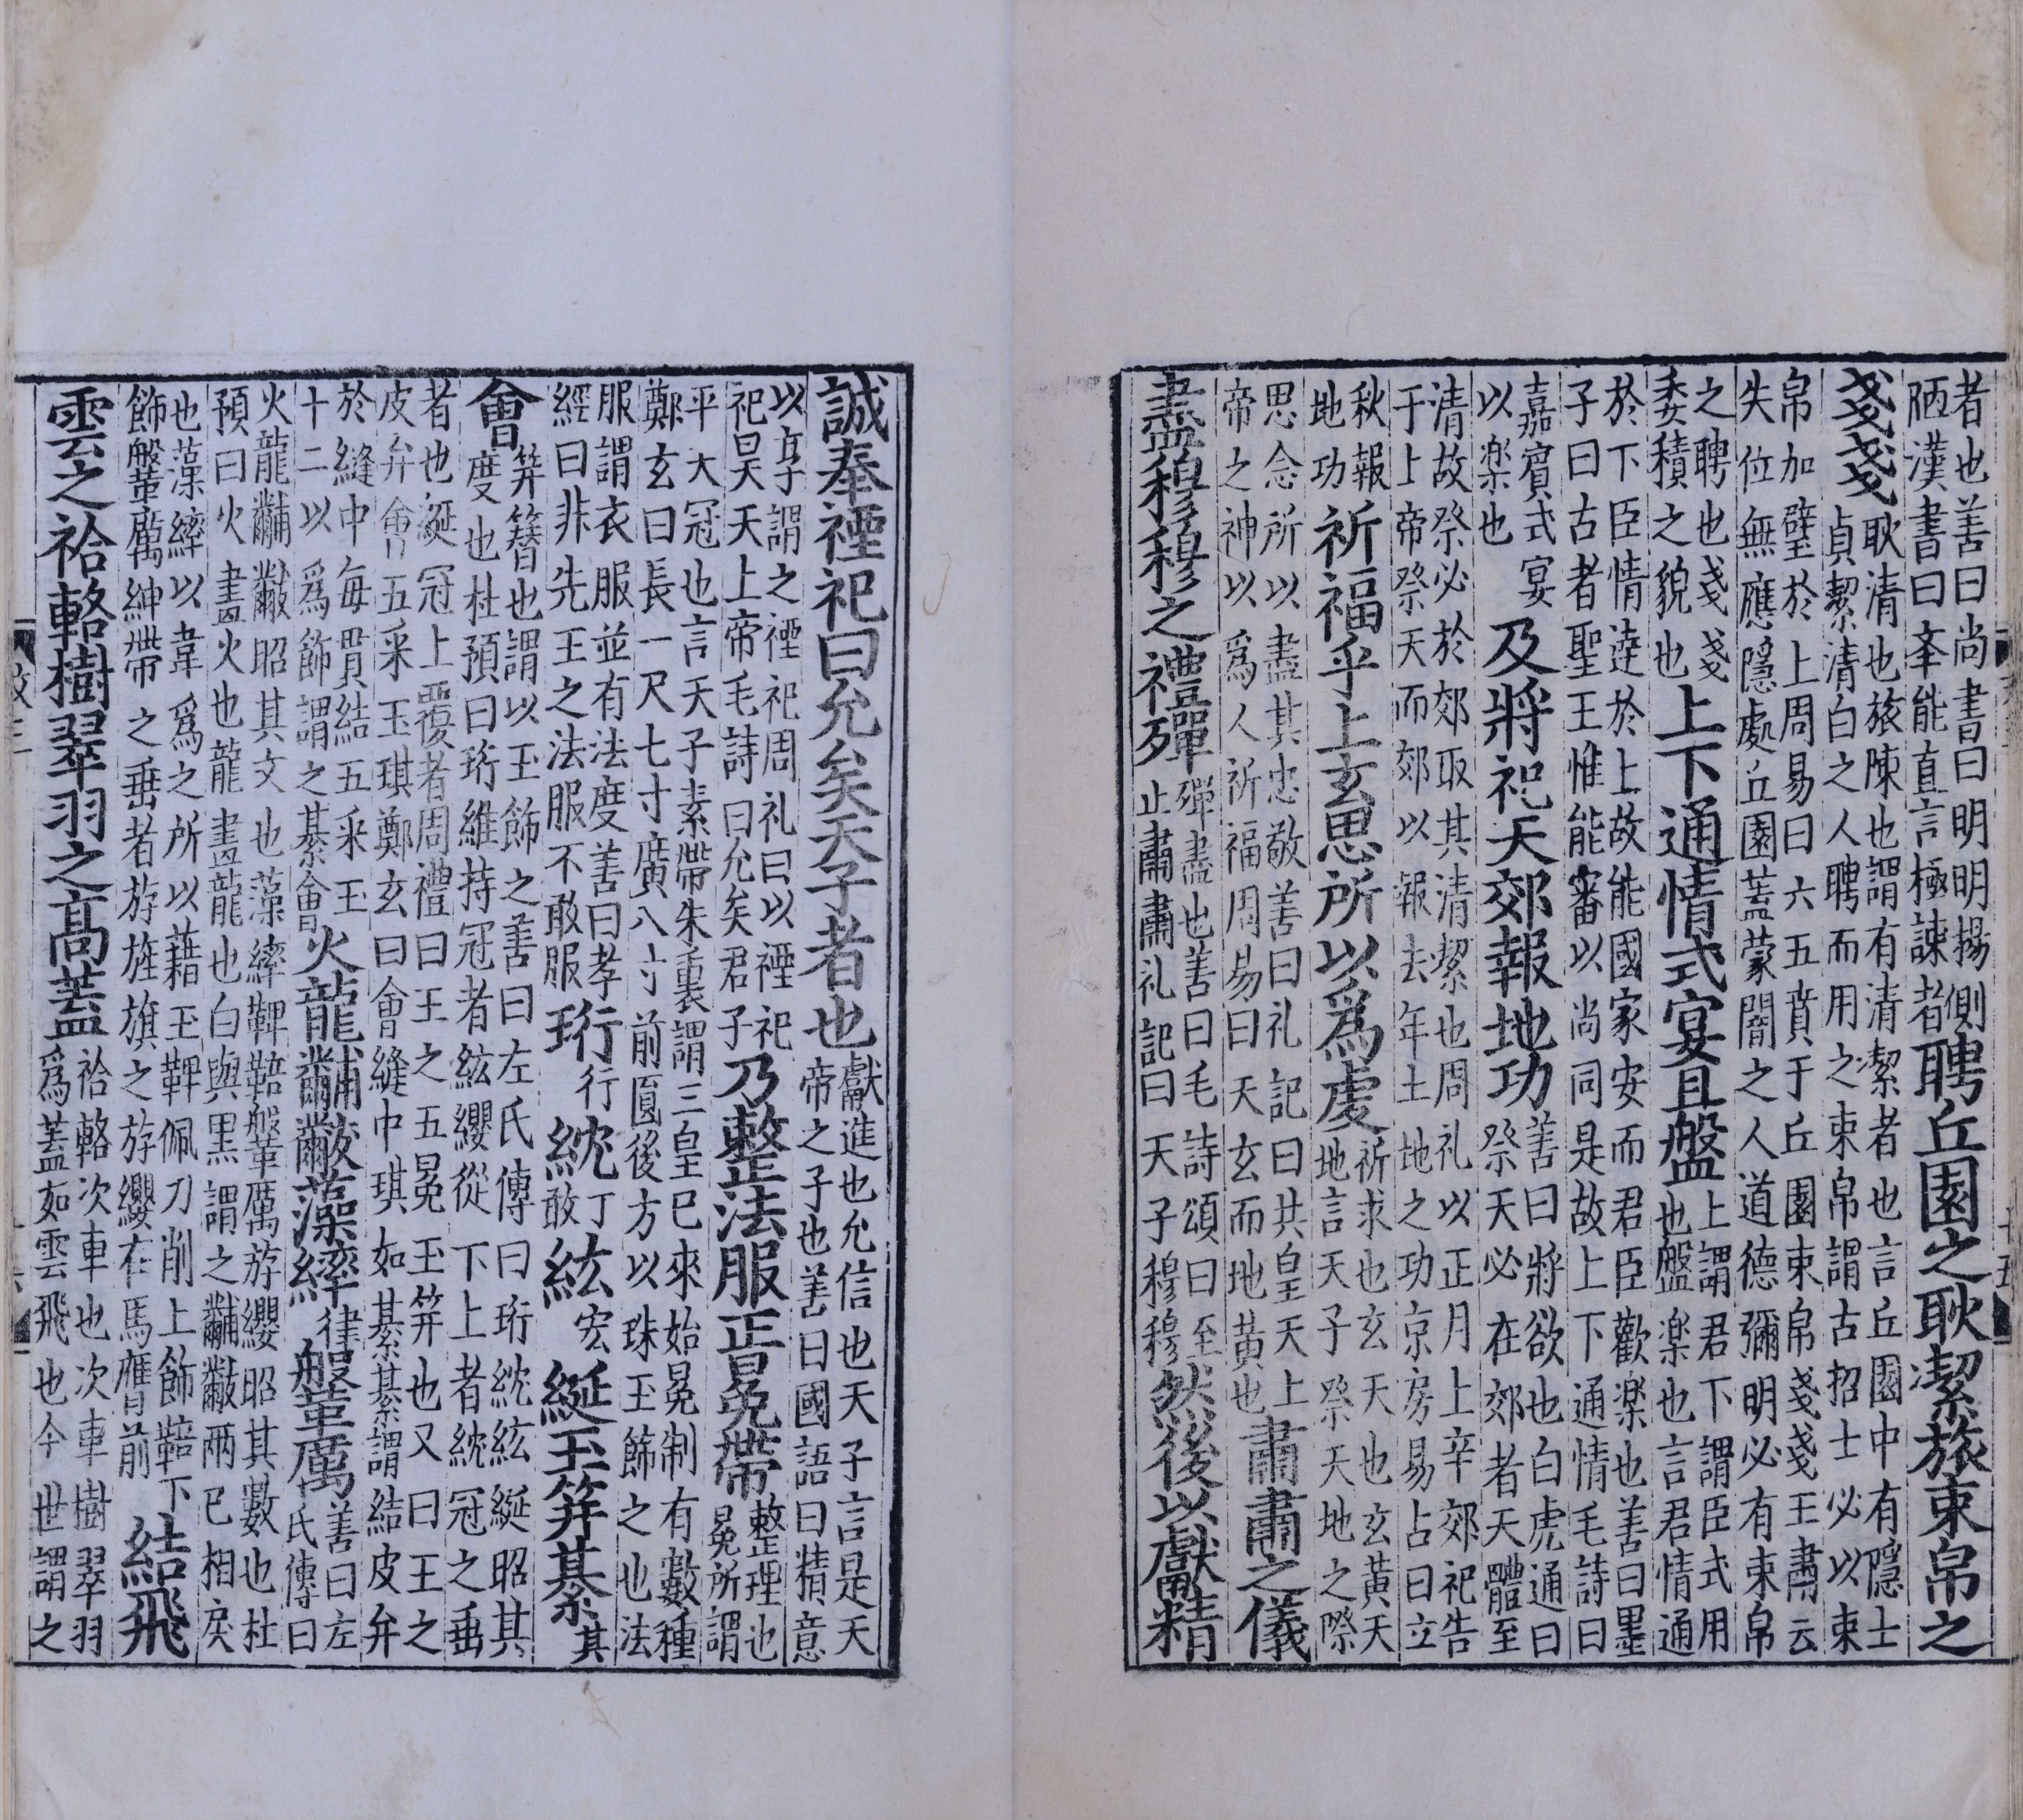 者也善曰尚書曰明明揚側
陋漢書曰奉能直言極諫者
聘丘園之耿潔旅束帛之
戔戔
耿清也旅陳也謂有清潔者也言丘園中有隱士
貞潔清白之人聘而用之束帛謂古招士必以束
帛加璧於上周易曰六五賁于丘園束帛戔戔王肅云
失位無應隱處丘園蓋蒙闇之人道德彌明必有束帛
之聘也戔戔
委積之貌也
上下通情式宴且盤
上謂君下謂臣式用
也盤楽也言君情通
於下臣情達於上故能國家安而君臣歡楽也善曰墨
子曰古者聖王惟能審以尚同是故上下通情毛詩曰
嘉賓式宴
以楽也
及將祀天郊報地功
善曰將欲也白虎通曰
祭天必在郊者天體至
清故祭必於郊取其清潔也周礼以正月上辛郊祀告
于上帝祭天而郊以報去年土地之功京房易占曰立
秋報
地功
祈福乎上玄思所以爲虔
祈求也玄天也玄黃天
地言天子祭天地之際
思念所以盡其忠敬善曰礼記曰共皇天上
帝之神以爲人祈福周易曰天玄而地黃也
肅肅之儀
盡穆穆之禮殫
殫盡也善曰毛詩頌曰至
止肅肅礼記曰天子穆穆
然後以獻精
誠奉禋祀曰允矣天子者也
獻進也允信也天子言是天
帝之子也善曰國語曰精意
以享謂之禋祀周礼曰以禋祀
祀昊天上帝毛詩曰允矣君子
乃整法服正冕帶
整理也
冕所謂
平大冠也言天子素帶朱裏謂三皇已來始冕制有數種
鄭玄曰長一尺七寸廣八寸前圓後方以珠玉飾之也法
服謂衣服並有法度善曰孝
經曰非先王之法服不敢服
珩行紞丁敢紘宏綖玉笄綦其
會
笄簪也謂以玉飾之善曰左氏傳曰珩紞紘綖昭其
度也杜預曰珩維持冠者紘纓從下上者紞冠之垂
者也綖冠上覆者周禮曰王之五冕玉笄也又曰王之
皮弁會五采玉琪鄭玄曰會縫中琪如綦綦謂結皮弁
於縫中每貫結五采玉
十二以爲飾謂之綦會
火龍黼黻藻繂律鞶厲
善曰左
氏傳曰
火龍黼黻昭其文也藻繂鞞鞛鞶厲斿纓昭其數也杜
預曰火畫火也龍畫龍也白與黑謂之黼黻兩已相戾
也藻繂以韋爲之所以藉玉鞞佩刀削上飾鞛下
飾鞶厲紳帶之垂者斿旌旗之斿纓在馬膺前
結飛
雲之袷輅樹翠羽之高蓋
袷輅次車也次車樹翠羽
爲蓋如雲飛也今世謂之